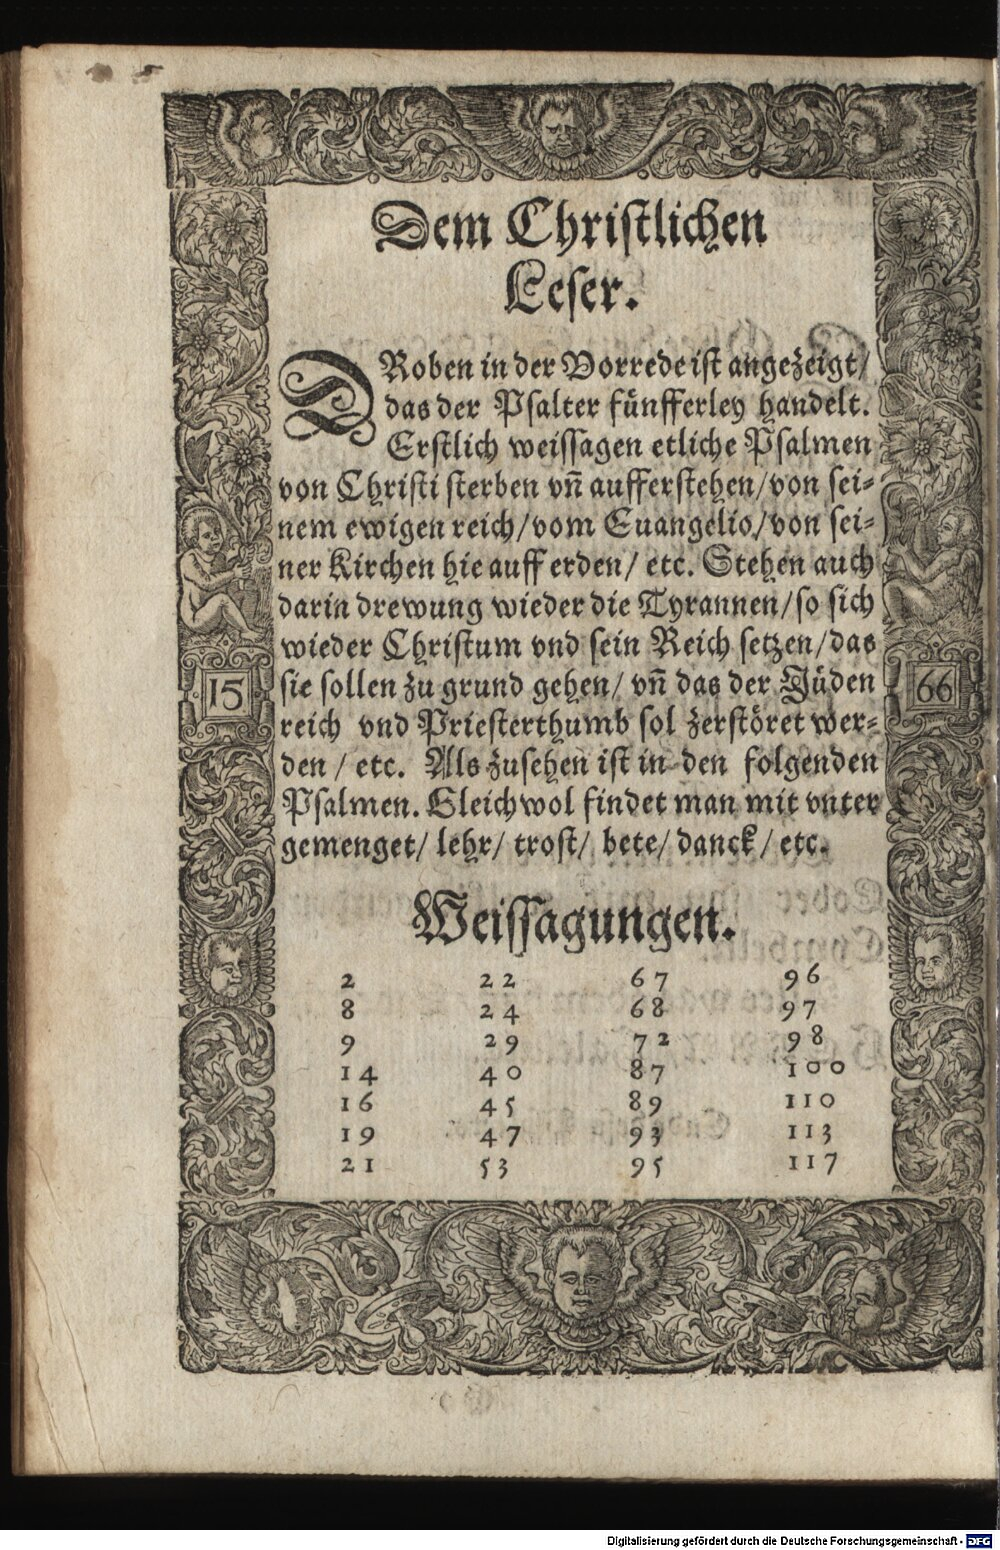 Dem Christlichen
Leser.
DRoben in der Vorrede ist angezeigt/
das der Psalter fünfferley handelt.
Erstlich weissagen etliche Psalmen
von Christi sterben vn̄ aufferstehen/von sei⸗
nem ewigen reich/vom Euangelio/von sei⸗
ner Kirchen hie auff erden/ etc. Stehen auch
darin drewung wieder die Tyrannen/so sich
wieder Christum vnd sein Reich setzen/das
sie sollen zu grund gehen/ vn̄ das der Jüden
reich vnd Priesterthumb sol zerstöret wer⸗
den / etc. Als zusehen ist in den folgenden
Psalmen. Gleichwol findet man mit vnter
gemenget/ lehr/ trost/ bete/ danck/ etc.
15 66
Weissagungen.
2 22 67 96
8 24 68 97
9 29 72 98
14 40 87 100
16 45 89 110
19 47 93 113
21 53 95 117
Digitalisierung gefördert durch die Deutsche Forschungsgemeinschaft - DFG